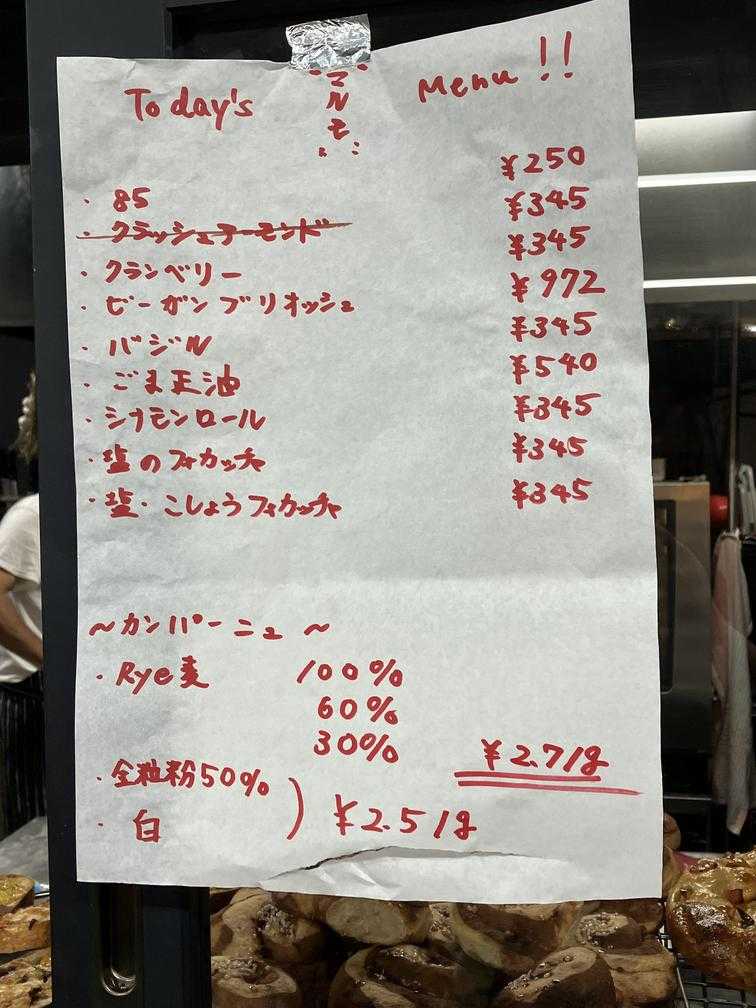 Today's マルモ Menu !!
・85 ¥250
・クラッシュアーモンド ¥345
・クランベリー ¥345
・ビーガンブリオッシュ ¥972
・バジル ¥345
・ごま玉油 ¥540
・シナモンロール ¥345
・塩のフォカッチャ ¥345
・塩・こしょうフォカッチャ ¥345
~カンパーニュ~
・Rye麦 100%
60%
30%
¥2.7/g
・全粒粉50%
・白 ) ¥2.5/g